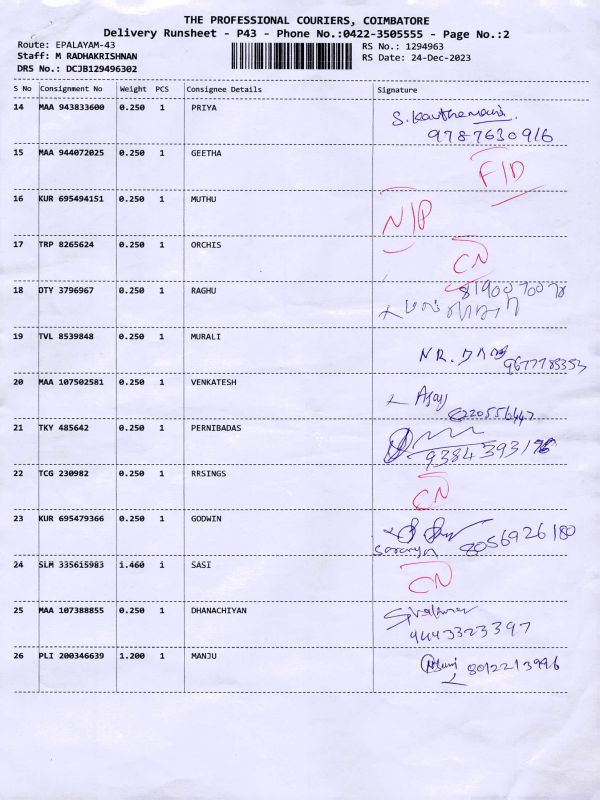 THE PROFESSIONAL COURIERS, COIMBATORE
Delivery Runsheet - P43 - Phone No.:0422-3505555 - Page No.:2
Route: EPALAYAM-43 RS No.: 1294963
Staff: M RADHAKRISHNAN RS Date: 24-Dec-2023
DRS No.: DCJB129496302
S No Consignment No Weight PCS Consignee Details Signature
14 MAA 943833600 0.250 1 PRIYA
9787630916
15 MAA 944072025 0.250 1 GEETHA F/D
16 KUR 695494151 0.250 1 MUTHU N/P
17 TRP 8265624 0.250 1 ORCHIS CN
18 DTY 3796967 0.250 1 RAGHU
19 TVL 8539848 0.250 1 MURALI
20 MAA 107502581 0.250 1 VENKATESH Ajay
8220556447
21 TKY 485642 0.250 1 PERNIBADAS
22 TCG 230982 0.250 1 RRSINGS CN
23 KUR 695479366 0.250 1 GODWIN
Saranya 8056926180
24 SLM 335615983 1.460 1 SASI CN
25 MAA 107388855 0.250 1 DHANACHIYAN
26 PLI 200346639 1.200 1 MANJU